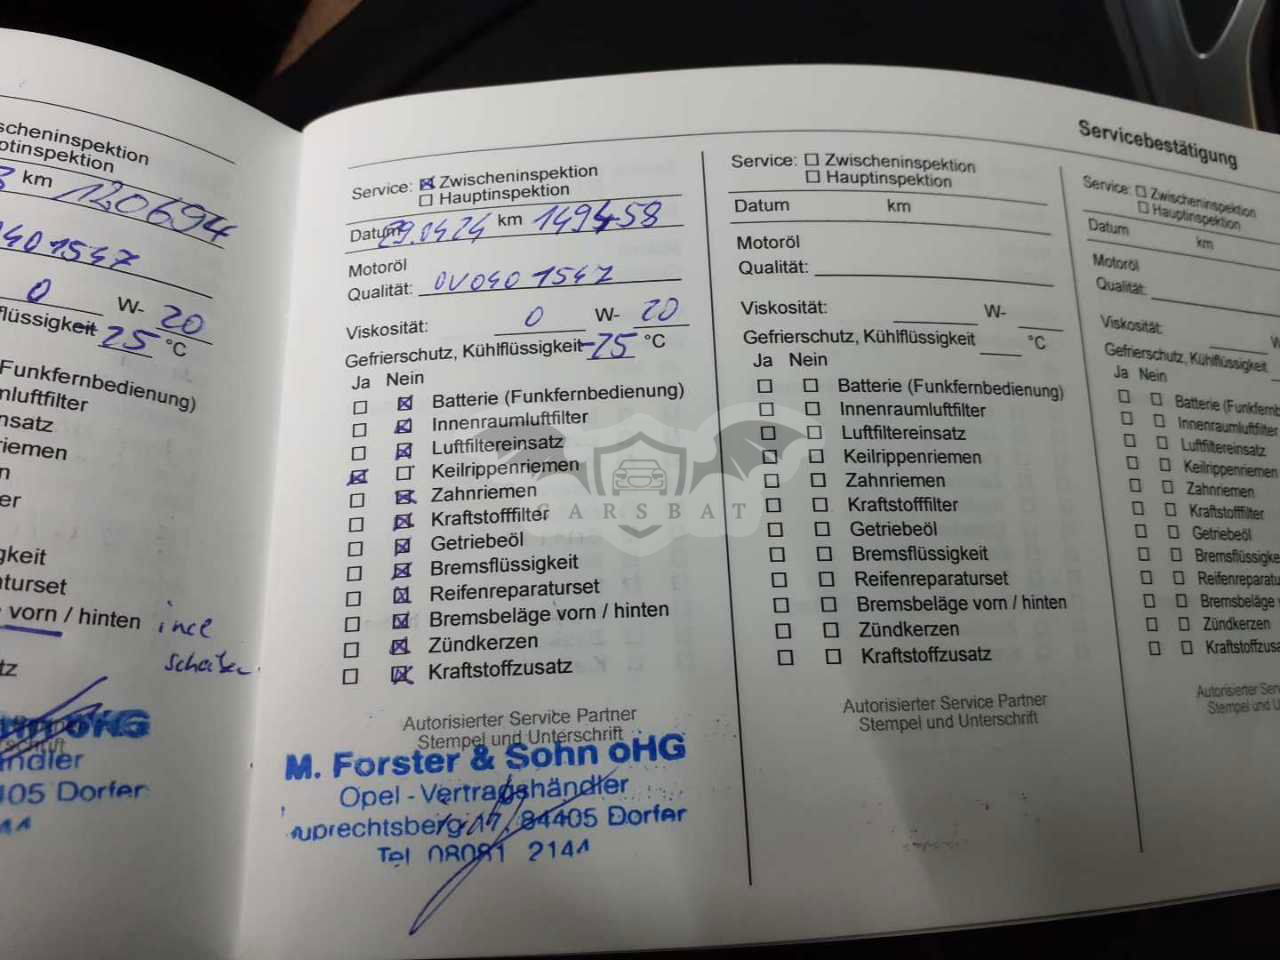 Servicebestätigung
scheninspektion
ptinspektion
km 120694
0401547
0 W- 20
flüssigkeit 25 °C
Funkfernbedienung)
nluftfilter
nsatz
riemen
n
er
gkeit
aturset
vorn / hinten incl
Scheiben
tz
oHG
ändler
405 Dorfen
44
Service: Zwischeninspektion
Hauptinspektion
Datum 29.04.24 km 149458
Motoröl
Qualität: OV0401547
Viskosität: 0 W- 20
Gefrierschutz, Kühlflüssigkeit -25 °C
Ja Nein
Batterie (Funkfernbedienung)
Innenraumluftfilter
Luftfiltereinsatz
Keilrippenriemen
Zahnriemen
Kraftstofffilter
Getriebeöl
Bremsflüssigkeit
Reifenreparaturset
Bremsbeläge vorn / hinten
Zündkerzen
Kraftstoffzusatz
Autorisierter Service Partner
Stempel und Unterschrift
M. Forster & Sohn oHG
Opel - Vertragshändler
uprechtsberg 17, 84405 Dorfen
Tel 08081 2144
CARSBAT
Service: Zwischeninspektion
Hauptinspektion
Datum km
Motoröl
Qualität:
Viskosität: W-
Gefrierschutz, Kühlflüssigkeit °C
Ja Nein
Batterie (Funkfernbedienung)
Innenraumluftfilter
Luftfiltereinsatz
Keilrippenriemen
Zahnriemen
Kraftstofffilter
Getriebeöl
Bremsflüssigkeit
Reifenreparaturset
Bremsbeläge vorn / hinten
Zündkerzen
Kraftstoffzusatz
Autorisierter Service Partner
Stempel und Unterschrift
Service: Zwischeninspektion
Hauptinspektion
Datum km
Motoröl
Qualität:
Viskosität: W
Gefrierschutz, Kühlflüssigkeit
Ja Nein
Batterie (Funkfernb
Innenraumluftfilter
Luftfiltereinsatz
Keilrippenriemen
Zahnriemen
Kraftstofffilter
Getriebeöl
Bremsflüssigke
Reifenreparatu
Bremsbeläge vo
Zündkerzen
Kraftstoffzusat
Autorisierter Servic
Stempel und Unte